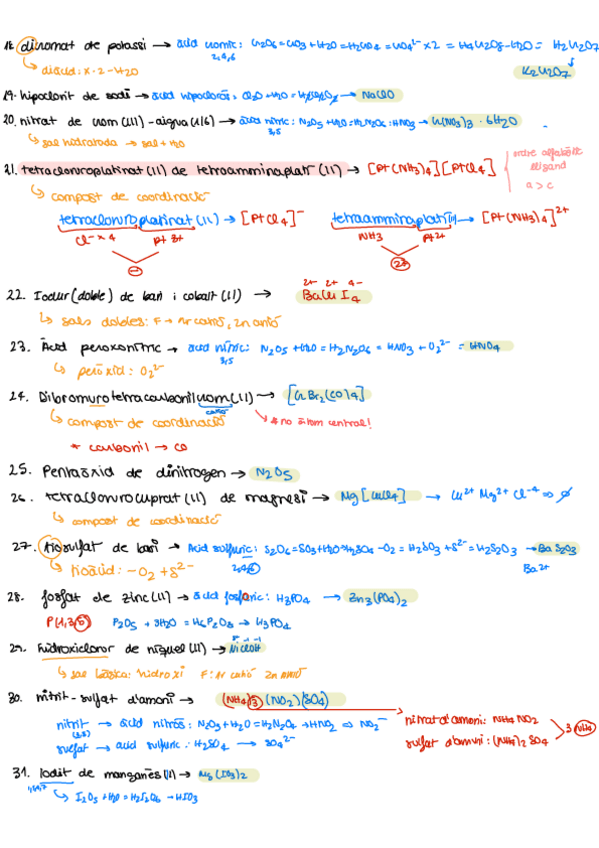 18. dicromat de potassi → àcid cròmic: Cr2O6 = CrO3 + H2O = H2CrO4 = CrO4²⁻ x2 = H4Cr2O8 - H2O = H2Cr2O7
2,4,6
↳ diàcid: x·2 - H2O
K2Cr2O7
19. hipoclorit de sodi → àcid hipoclorós: Cl2O + H2O = H2Cl2O2 → NaClO
20. nitrat de crom (III) - aigua (1/6) → àcid nítric: N2O5 + H2O = H2N2O6 = HNO3 → Cr(NO3)3 · 6H2O
3,5
↳ sal hidratada → sal + H2O
21. tetracloroplatinat (II) de tetraamminaplatí (II) → [Pt(NH3)4][PtCl4]
ordre alfabètic lligand
a > c
↳ compost de coordinació
tetracloroplatinat (II) → [PtCl4]⁻
tetraamminaplatí(II) → [Pt(NH3)4]²⁺
Cl⁻ x 4 Pt 3+
NH3 Pt2+
⊖
2+
22. Iodur (doble) de bari i cobalt (II) → BaCoI4
2+ 2+ 4-
↳ sals dobles: F → 1r catió, 2n anió
23. Àcid peroxonítric → àcid nítric: N2O5 + H2O = H2N2O6 = HNO3 + O2²⁻ = HNO4
3,5
↳ peròxid: O2²⁻
24. Dibromurotetracarbonilcrom (II) → [CrBr2(CO)4]
↳ compost de coordinació
↳ no àtom central!
* carbonil → CO
25. Pentaòxid de dinitrogen → N2O5
26. tetraclorocuprat (II) de magnesi → Mg[CuCl4] → Cu²⁺ Mg²⁺ Cl⁻⁴ ⇒ ∅
↳ compost de coordinació
27. tiosulfat de bari → Àcid sulfúric: S2O6 = SO3 + H2O = H2SO4 - O2 = H2SO3 + S²⁻ = H2S2O3 → BaS2O3
2,4,6
Ba2+
↳ tioàcid: -O2 + S²⁻
28. fosfat de zinc (II) → àcid fosfòric: H3PO4 → Zn3(PO4)2
P(1,3,5) P2O5 + 3H2O = H6P2O8 → H3PO4
29. hidroxiclorur de níquel (II) → NiClOH
↳ sal bàsica: hidroxi F: 1r catió 2n anió
30. nitrit-sulfat d'amoni → (NH4)3(NO2)(SO4)
nitrit → àcid nitrós: N2O3 + H2O = H2N2O4 → HNO2 ⇒ NO2⁻
(3,5)
nitrat d'amoni: NH4 NO2
sulfat → àcid sulfúric: H2SO4 → SO4²⁻
sulfat d'amoni: (NH4)2 SO4
3 NH4
31. Iodit de manganès (II) → Mg(IO3)2
↳ I2O5 + H2O = H2I2O6 → HIO3